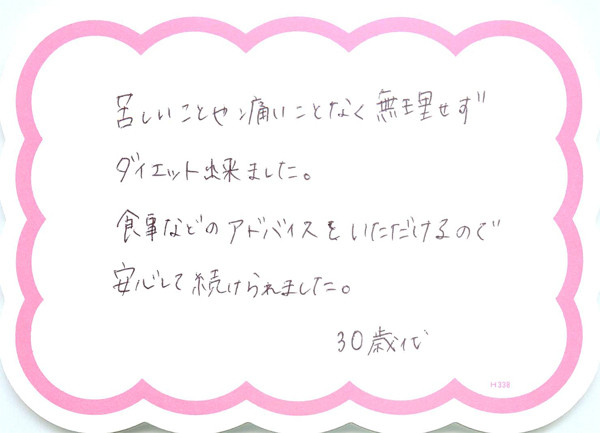 苦しいことや痛いことなく無理せず
ダイエット出来ました。
食事などのアドバイスをいただけるので
安心して続けられました。
30歳代
H238